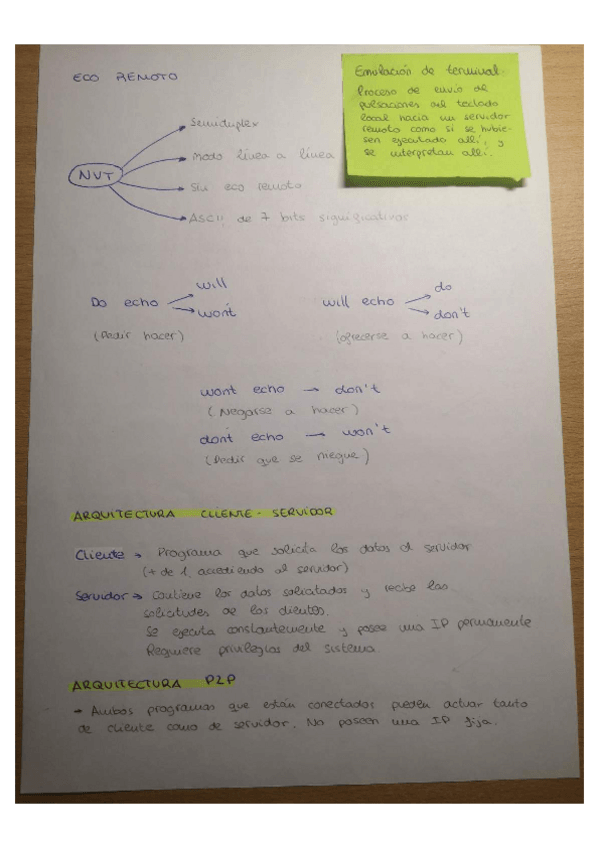 ECO REMOTO
Emulación de terminal.
Proceso de envío de
pulsaciones del teclado
local hacia un servidor
remoto como si se hubie-
sen ejecutado allí, y
se interpretan allí.
NVT
Semiduplex
Modo línea a línea
Sin eco remoto
ASCII de 7 bits significativos
Do echo
will
won't
(Pedir hacer)
will echo
do
don't
(ofrecerse a hacer)
wont echo → don't
(Negarse a hacer)
dont echo → won't
(Pedir que se niegue)
ARQUITECTURA CLIENTE - SERVIDOR
Cliente → Programa que solicita los datos al servidor
(+ de 1, accediendo al servidor)
Servidor → Contiene los datos solicitados y recibe las
solicitudes de los clientes.
Se ejecuta constantemente y posee una IP permanente
Requiere privilegios del sistema
ARQUITECTURA P2P
→ Ambos programas que están conectados pueden actuar tanto
de cliente como de servidor. No poseen una IP fija.